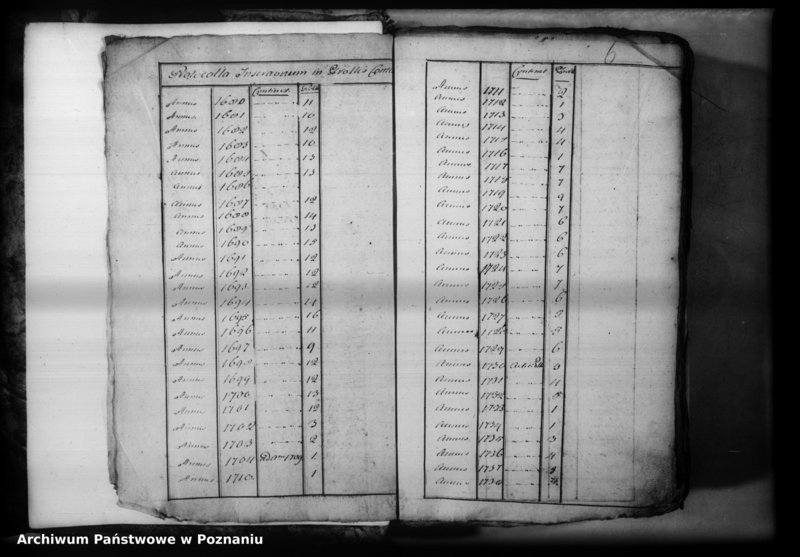 Protocolla Inscriptionum in Grossis
Continet
Annus 1680 11
Annus 1681 10
Annus 1682 12
Annus 1683 10
Annus 1684 13
Annus 1685 13
Annus 1686
Annus 1687 12
Annus 1688 14
Annus 1689 13
Annus 1690 15
Annus 1691 12
Annus 1692 12
Annus 1693 12
Annus 1694 14
Annus 1695 16
Annus 1696 11
Annus 1697 9
Annus 1698 12
Annus 1699 12
Annus 1700 13
Annus 1701 12
Annus 1702 3
Annus 1703 2
Annus 1704 1709 1
Annus 1710 1
6
Continet
Annus 1711 2
Annus 1712 1
Annus 1713 3
Annus 1714 4
Annus 1715 4
Annus 1716 1
Annus 1717 7
Annus 1718 7
Annus 1719 9
Annus 1720 7
Annus 1721 6
Annus 1722 6
Annus 1723 6
Annus 1724 7
Annus 1725 7
Annus 1726 6
Annus 1727
Annus 1728
Annus 1729 6
Annus 1730
Annus 1731 4
Annus 1732
Annus 1733 1
Annus 1734 1
Annus 1735 3
Annus 1736 4
Annus 1737
Annus 1738
Archiwum Państwowe w Poznaniu